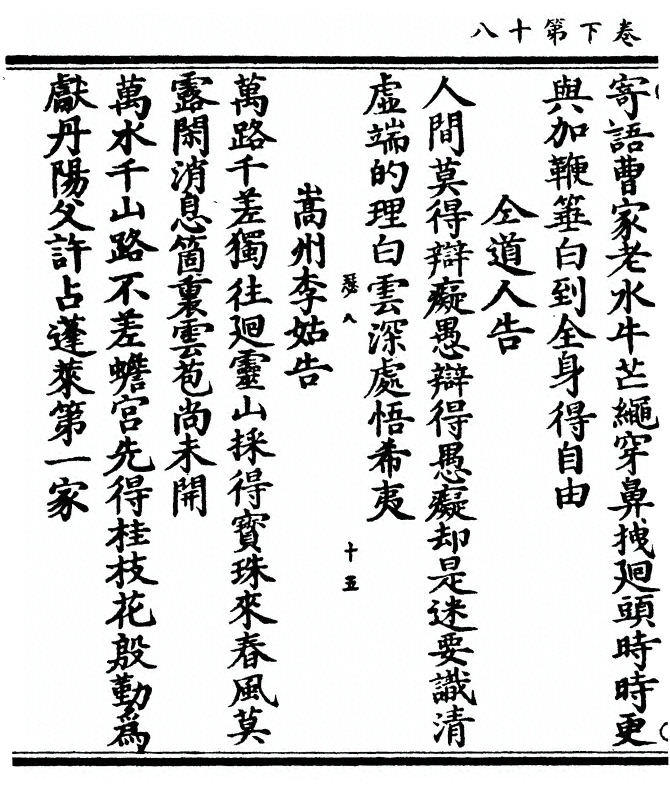 卷下第十八
寄語曹家老水牛芒繩穿鼻拽廻頭時時更
與加鞭箠白到全身得自由
仝道人告
人間莫得辯癡愚辯得愚癡却是迷要識清
虛端的理白雲深處悟希夷
十五
嵩州李姑告
萬路千差獨往廻靈山採得寶珠來春風莫
露閑消息箇裏雲苞尚未開
萬水千山路不差蟾宮先得桂枝花殷勤爲
獻丹陽父許占蓬萊第一家